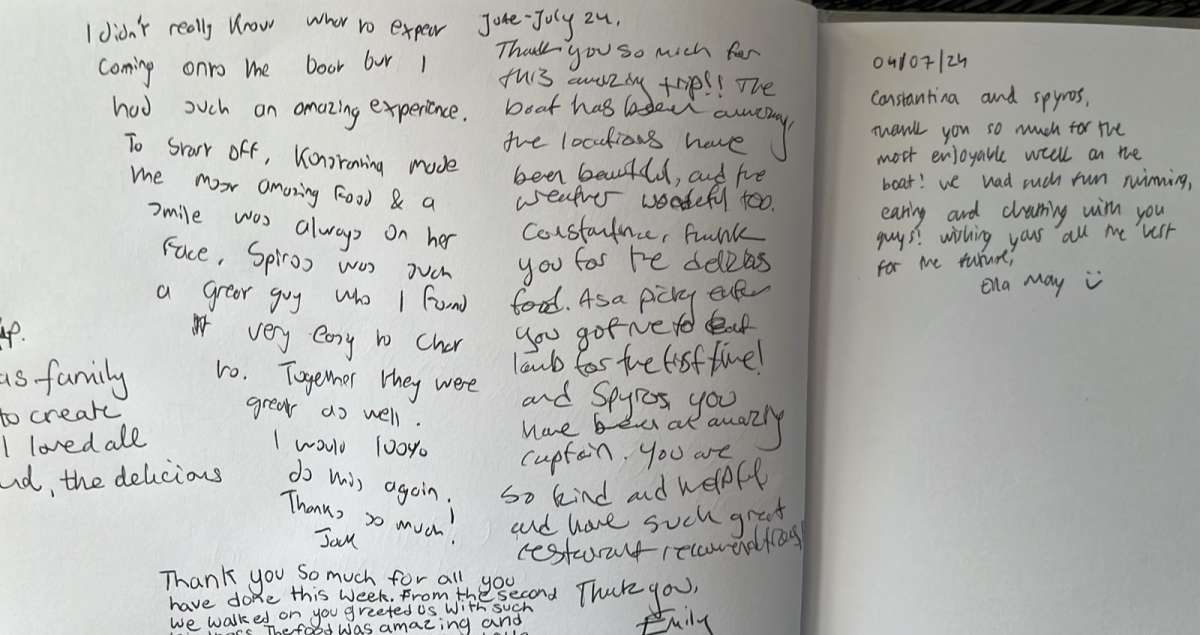 I didn't really know what to expect
coming onto the boat but I
had such an amazing experience.
To start off, Konstantina made
the most amazing food & a
smile was always on her
face, Spiros was such
a great guy who I found
very easy to chat
to. Together they were
great as well.
I would 100%
do this again.
Thanks so much!
Jack
June-July 24.
Thank you so much for
this amazing trip!! The
boat has been amazing,
the locations have
been beautiful, and the
weather wondeful too.
Constantina, thank
you for the delicias
food. As a picky eater
you got me to eat
lamb for the first time!
and Spyros, you
have been an amazing
captain. You are
so kind and helpful
and have such great
restaurant recommendations!
Thank you,
Emily
as family
to create
I loved all
nd, the delicious
Thank you so much for all you
have done this week. From the second
we walked on you greeted us with such
The food was amazing and
04/07/24
Constantina and spyros,
thank you so much for the
most enjoyable week on the
boat! we had such fun swimming,
eating and chatting with you
guys! wishing you all the best
for the future,
Ella May ☺